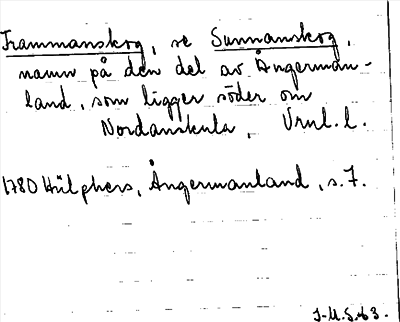 Frammanskog, se Sunnanskog,
namn på den del av Ångerman-
land, som ligger söder om
Nordanskula, Vrnl. l.
1780 Hülphers, Ångermanland, s. 7.
J-M.S. 63.